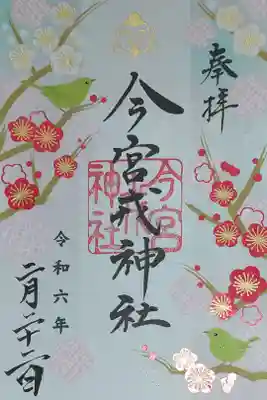 奉拝
今宮戎神社
今宮
戎
神社
令和六年
二月